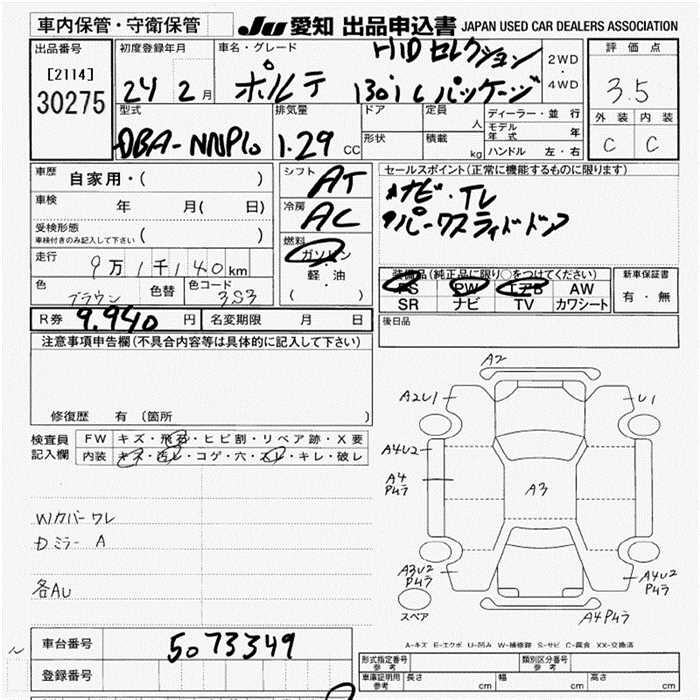 車内保管・守衛保管 JU 愛知 出品申込書 JAPAN USED CAR DEALERS ASSOCIATION
出品番号 初度登録年月 車名・グレード HID セレクション 2WD・4WD 評価点
[2114] 30275 24 2月 ポルテ 130i Cパッケージ 3.5
型式 排気量 ドア 定員 人 ディーラー・並行 外装 内装
DBA-NNP10 1.29 CC 形状 積載 kg モデル年式 年 C C
ハンドル 左・右
車歴 自家用・( ) シフト AT セールスポイント(正常に機能するものに限ります)
車検 年 月( 日) 冷房 AC ナビ・TV
受検形態 ( ) パークスライドドア
車検付きのみ記入して下さい
燃料 ガソリン・軽油 ( )
走行 9万1千140km 装備品(純正品に限り○をつけてください) 新車保証書
色 ブラウン 色替 色コード 3S3 PS PW エアB AW 有・無
SR ナビ TV カワシート
R券 9,940 円 名変期限 月 日 後日品
注意事項申告欄(不具合内容等は具体的に記入して下さい)
修復歴 有(箇所
検査員記入欄 FW キズ・飛石・ヒビ割・リペア跡・X要
内装 キズ・汚レ・コゲ・穴・スレ・キレ・破レ
A2
A2U1 U1
A4U2
A4 Pムラ A3
A3U2 Pムラ A4U2 Pムラ
スペア A4Pムラ
Wカバーワレ
Dミラー A
各AU
A-キズ E-エクボ U-凹み W-補修跡 S-サビ C-腐食 XX-交換済
車台番号 5073349 形式指定番号 参考 類別区分番号 参考
登録番号 車庫証明用 参考 長さ cm 幅 cm 高さ cm